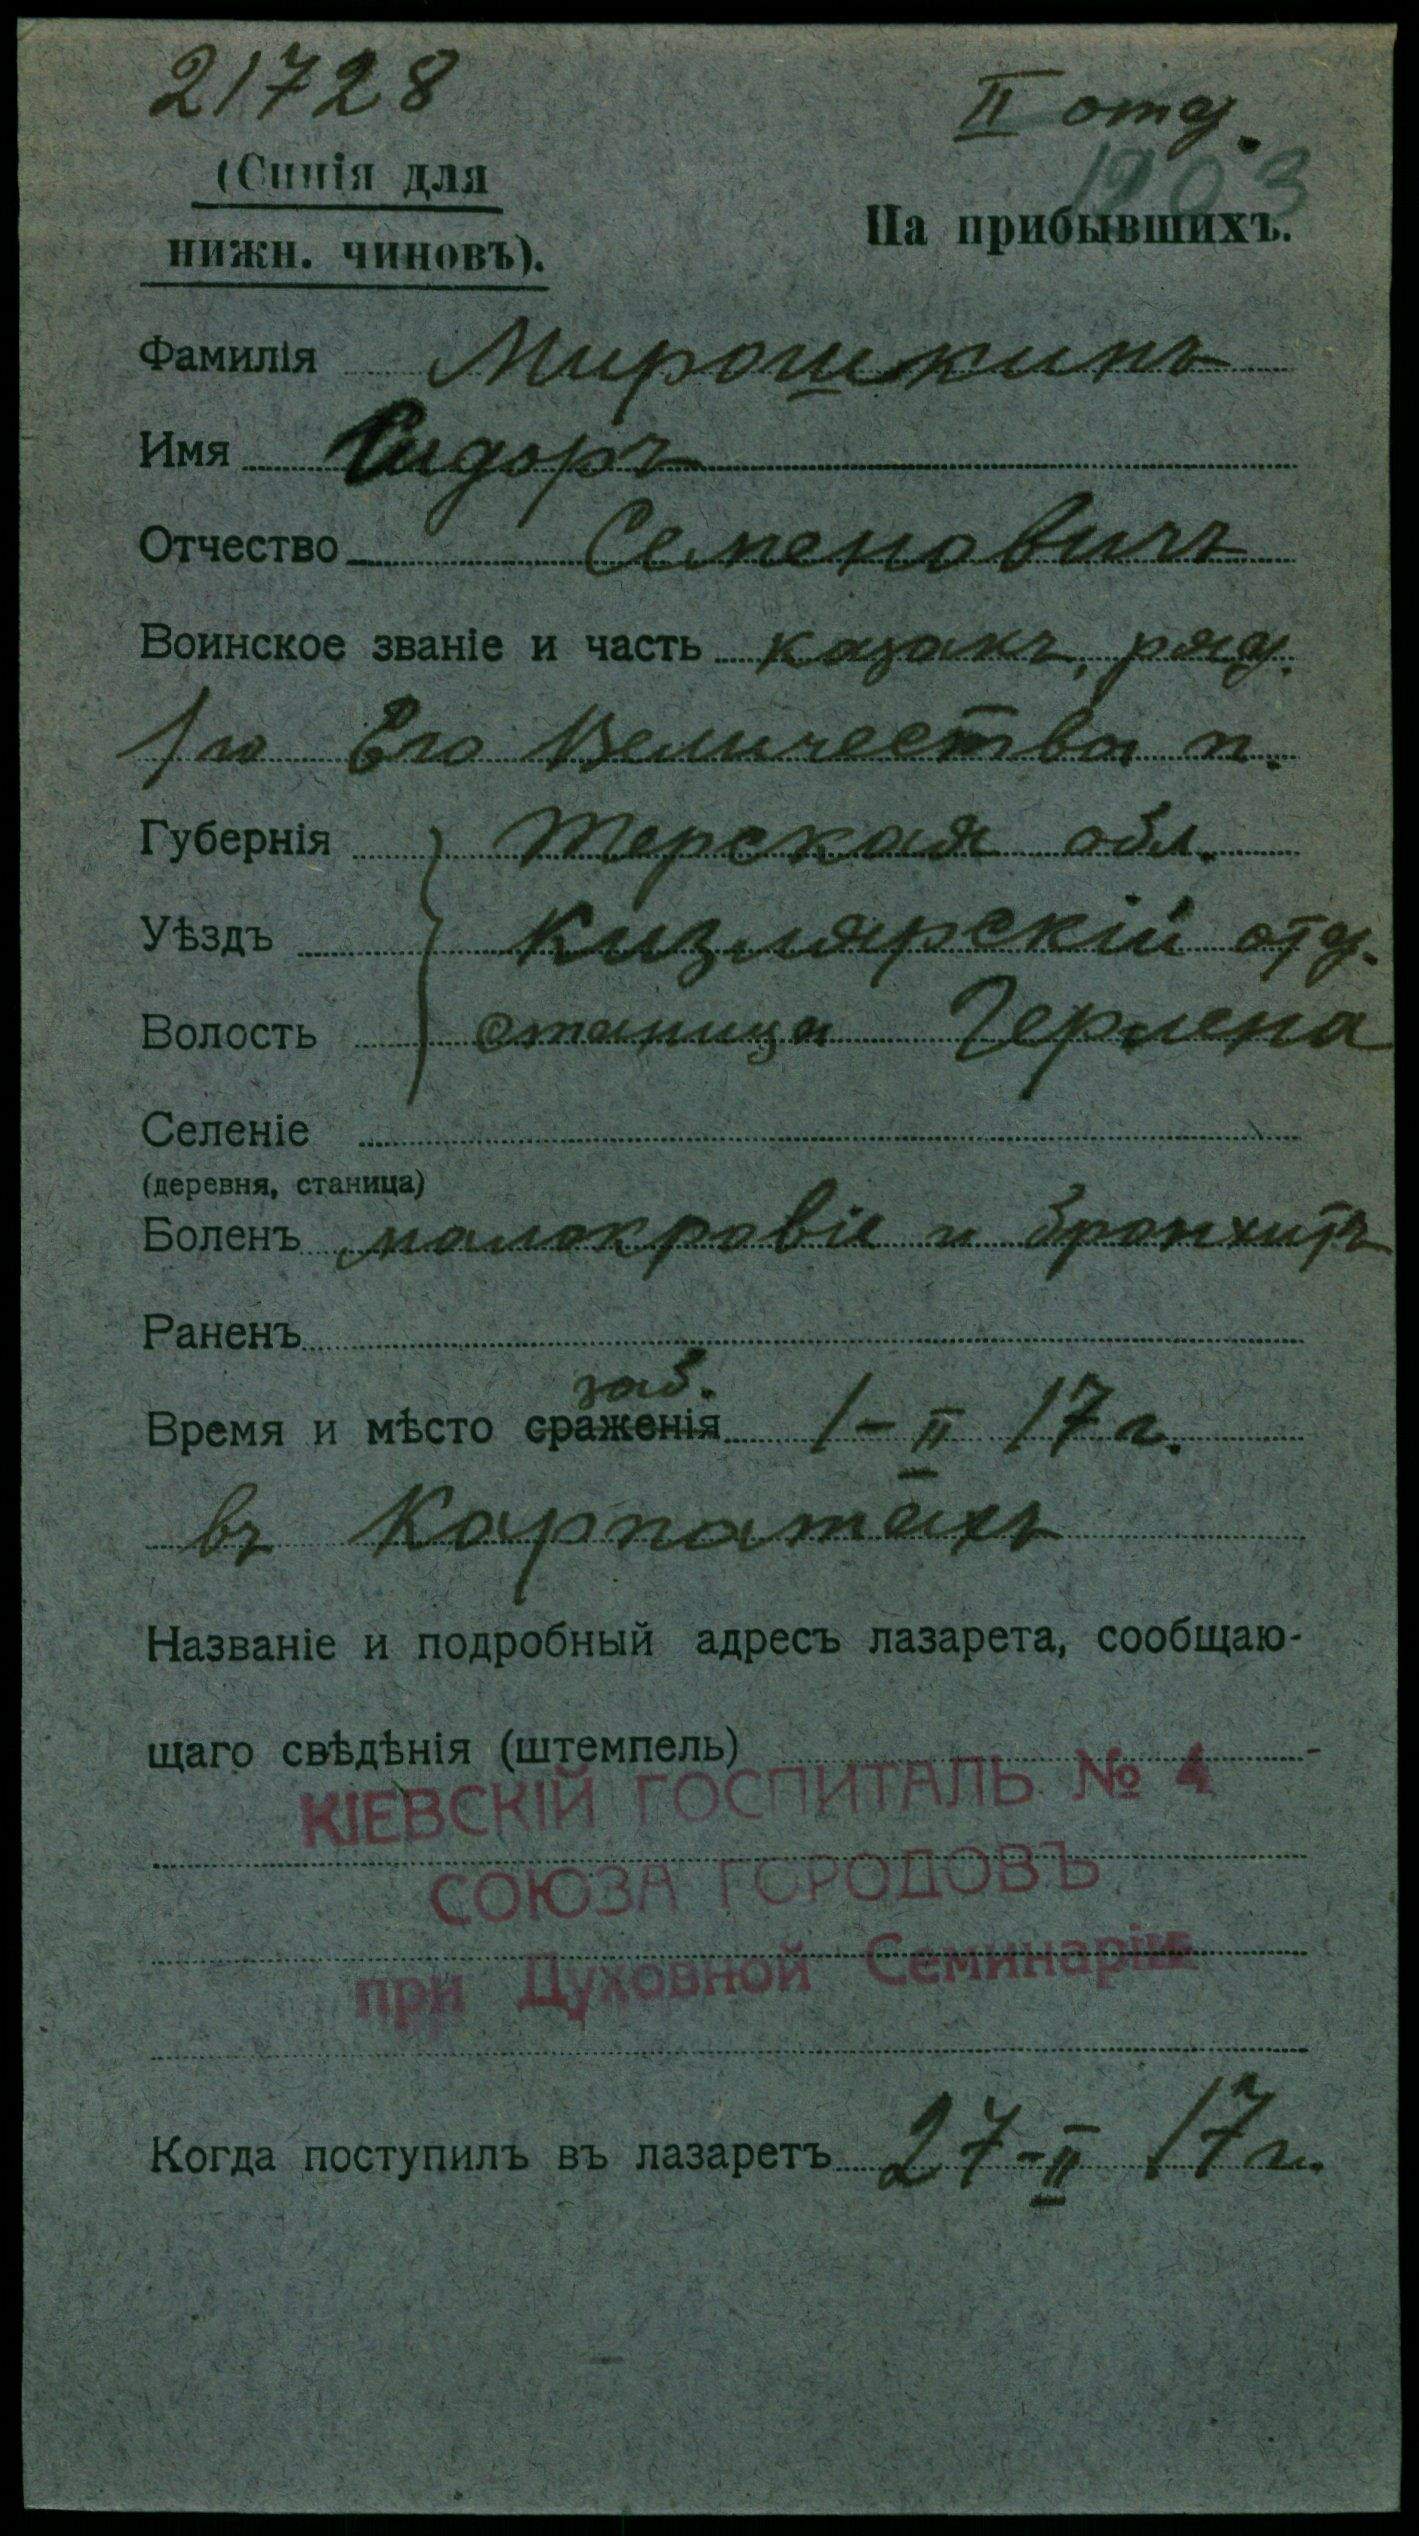 21728
II отд.
1903
(Синія для
нижн. чиновъ).
На прибывшихъ.
Фамилія Мирошкинъ
Имя Сидоръ
Отчество Семеновичъ
Воинское званіе и часть казакъ, ряд.
1го Его Величества п.
Губернія Терская обл.
Уѣздъ Кизлярскій отд.
Волость станица Черлена
Селеніе
(деревня, станица)
Боленъ малокровіе и бронхитъ
Раненъ
заб.
Время и мѣсто сраженія 1-II 17 г.
въ Карпатахъ
Названіе и подробный адресъ лазарета, сообщаю-
щаго свѣдѣнія (штемпель)
КІЕВСКІЙ ГОСПИТАЛЬ № 4
СОЮЗА ГОРОДОВЪ
при Духовной Семинаріи
Когда поступилъ въ лазаретъ 27-II 17 г.